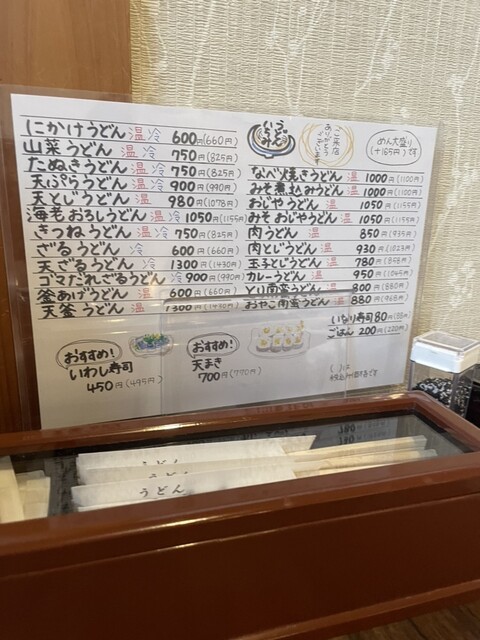 にかけうどん 温 冷 600円(660円)
山菜うどん 温 冷 750(825円)
たぬきうどん 温 冷 750(825円)
天ぷらうどん 温 冷 900(990円)
天とじうどん 温 980(1078円)
海老おろしうどん 温 冷 1050(1155円)
きつねうどん 温 冷 750(825円)
ざるうどん 冷 600(660円)
天ざるうどん 冷 1300(1430円)
ゴマだれざるうどん 冷 900(990円)
釜あげうどん 温 600(660円)
天釜うどん 温 1300(1430円)
ご来店
ありがとう
ございます
めん大盛り
(+165円)です
なべ焼きうどん 温 1000(1100円)
みそ煮込みうどん 温 1000(1100円)
おじやうどん 温 1050(1155円)
みそおじやうどん 温 1050(1155円)
肉うどん 温 850(935円)
肉とじうどん 温 930(1023円)
玉子とじうどん 温 780(858円)
カレーうどん 温 950(1045円)
とり南蛮うどん 温 800(880円)
おやこ南蛮うどん 温 880(968円)
いなり寿司 80(88円)
ごはん 200(220円)
おすすめ!
いわし寿司
450円(495円)
おすすめ!
天まき
700円(770円)
うどん